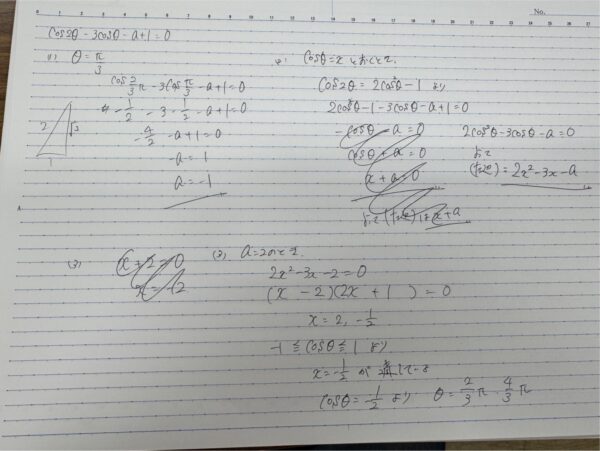 No.
cos2θ - 3cosθ - a + 1 = 0
(1) θ = π/3
cos 2/3 π - 3cos π/3 - a + 1 = 0
- 1/2 - 3 · 1/2 - a + 1 = 0
- 4/2 - a + 1 = 0
-a = 1
a = -1
2
√3
1
cosθ = x とおくと、
cos2θ = 2cos²θ - 1 より
2cos²θ - 1 - 3cosθ - a + 1 = 0
-cosθ - a = 0
cosθ + a = 0
x + a = 0
よって (左辺) は x + a
2cos²θ - 3cosθ - a = 0
よって
(左辺) = 2x² - 3x - a
(3)
x + 2 = 0
x = -2
(3) a = 2のとき、
2x² - 3x - 2 = 0
(x - 2)(2x + 1) = 0
x = 2, - 1/2
-1 ≦ cosθ ≦ 1 より
x = - 1/2 が
cosθ = - 1/2 より θ = 2/3 π 4/3 π